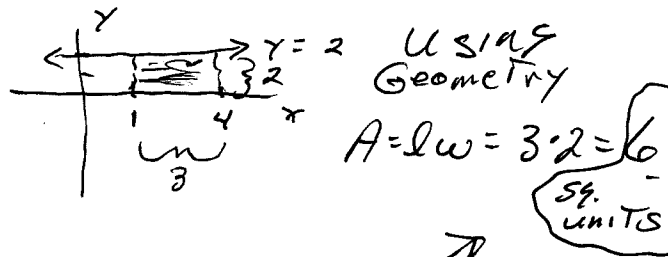 Y
Y = 2
2
1 4 x
3
Using
Geometry
A = lw = 3·2 = 6
sq.
units